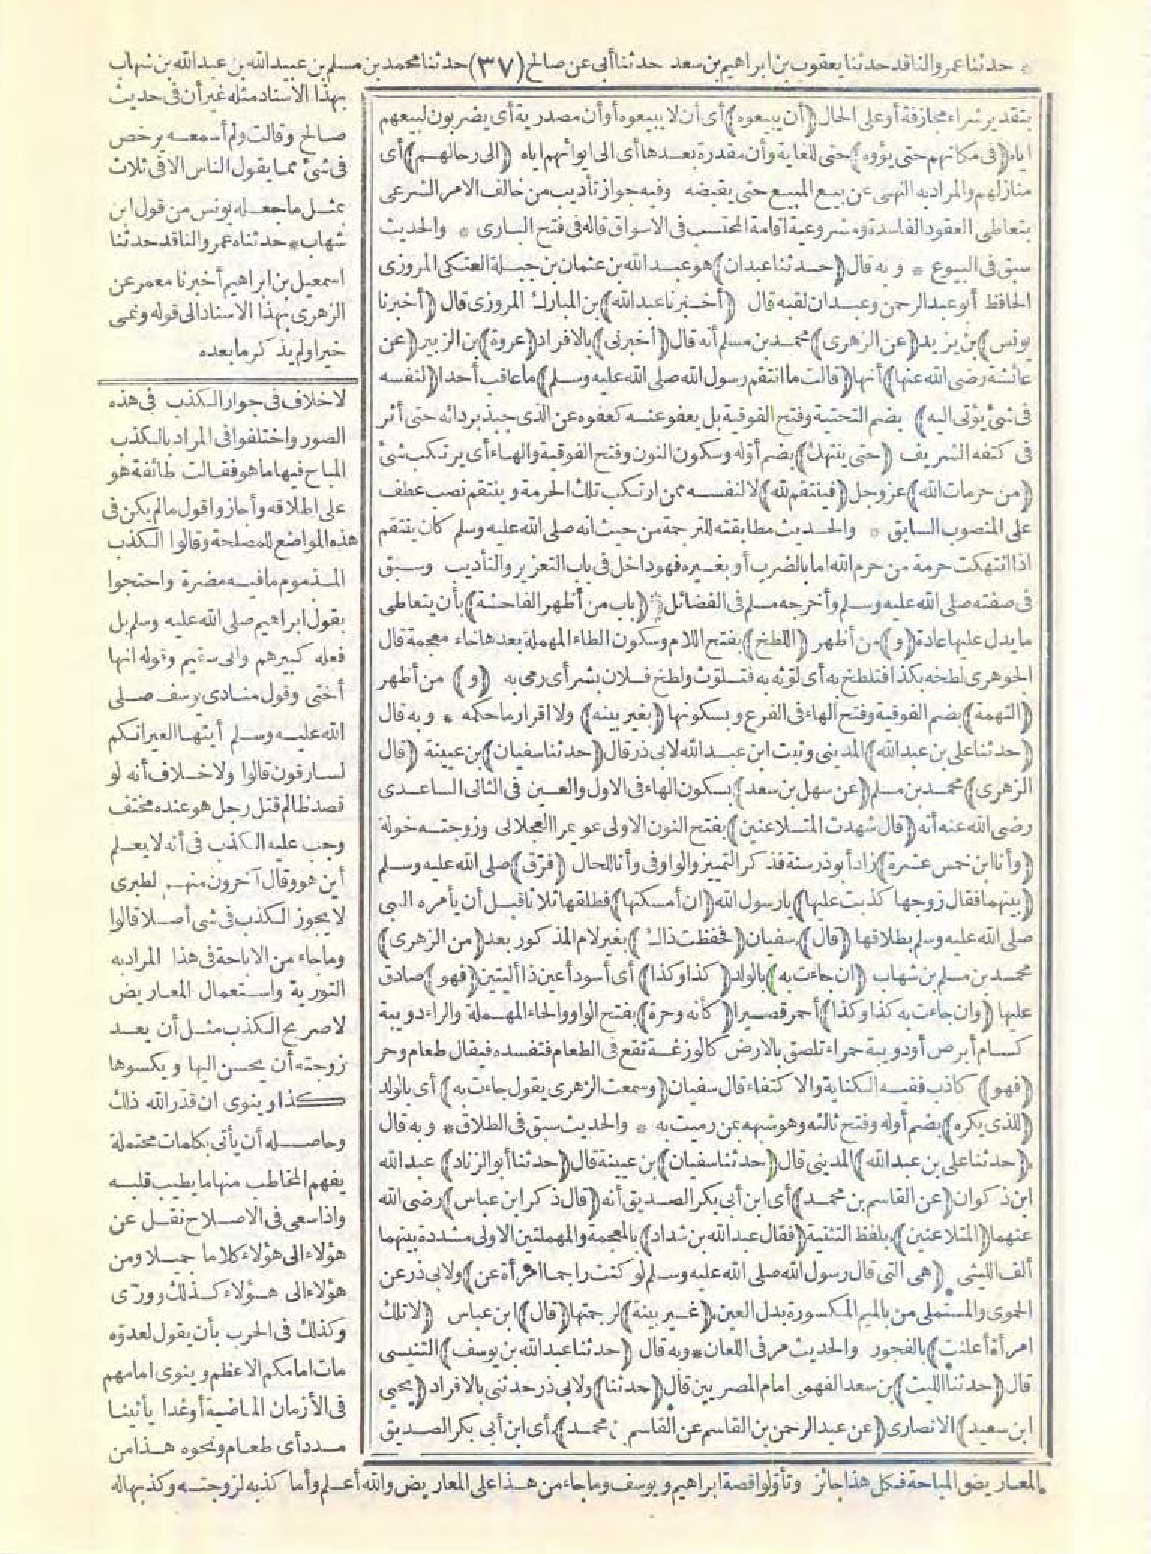 * حدثنا عمرو الناقد حدثنا يعقوب بن ابراهيم بن سعد حدثنا أبى عن صالح (٣٧) حدثنا محمد بن مسلم بن عبيد الله بن عبد الله بن شهاب
بهذا الاسناد مثله غير أن فى حديث
صالح وقالت ولم أسمعه يرخص
فى شئ مما يقول الناس الا فى ثلاث
بمثل ما جعله يونس من قول ابن
شهاب * حدثناه عمرو الناقد حدثنا
اسمعيل بن ابراهيم أخبرنا معمر عن
الزهرى بهذا الاسناد الى قوله ونمى
خيرا ولم يذكر ما بعده
لا خلاف فى جواز الكذب فى هذه
الصور واختلفوا فى المراد بالكذب
المباح فيها ما هو فقالت طائفة هو
على اطلاقه وأجازوا قول ما لم يكن فى
هذه المواضع للمصلحة وقالوا الكذب
المذموم ما فيه مضرة واحتجوا
بقول ابراهيم صلى الله عليه وسلم بل
فعله كبيرهم وانى سقيم وقوله انها
أختى وقول منادى يوسف صلى
الله عليه وسلم أيتها العير انكم
لسارقون قالوا ولا خلاف أنه لو
قصد ظالم قتل رجل هو عنده مختف
وجب عليه الكذب فى أنه لا يعلم
أين هو وقال آخرون منهم الطبرى
لا يجوز الكذب فى شئ أصلا قالوا
وما جاء من الاباحة فى هذا المراد به
التورية واستعمال المعاريض
لا صريح الكذب مثل أن يعد
زوجته أن يحسن اليها ويكسوها
كذا وينوى ان قدر الله ذلك
وحاصله أن يأتى بكلمات محتملة
يفهم المخاطب منها ما يطيب قلبه
واذا سعى فى الاصلاح نقل عن
هؤلاء الى هؤلاء كلاما جميلا ومن
هؤلاء الى هؤلاء كذلك وورّى
وكذلك فى الحرب بأن يقول لعدوّه
مات امامكم الاعظم وينوى امامهم
فى الأزمان الماضية أو غدا يأتينا
مدد أى طعام ونحوه هذا من
المعاريض المباحة فكل هذا جائز وتأوّلوا قصة ابراهيم ويوسف وما جاء من هذا على المعاريض والله أعلم وأما كذبه لزوجته وكذبها له
بتقدير شراء مجازفة أو على الحال (أن يبيعوه) أى أن لا يبيعوه أو أن مصدرية أى يضربون لبيعهم
اياه (فى مكانهم حتى يؤوه) حتى للغاية وأن مقدرة بعدها أى الى ايوائهم اياه (الى رحالهم) أى
منازلهم والمراد به النهى عن بيع المبيع حتى يقبضه وفيه جواز تأديب من خالف الامر الشرعى
بتعاطى العقود الفاسدة ومشروعية اقامة المحتسب فى الاسواق قاله فى فتح البارى * والحديث
سبق فى البيوع * وبه قال (حدثنا عبدان) هو عبد الله بن عثمان بن جبلة العتكى المروزى
الحافظ أبو عبد الرحمن وعبدان لقبه قال (أخبرنا عبد الله) بن المبارك المروزى قال (أخبرنا
يونس) بن يزيد (عن الزهرى) محمد بن مسلم أنه قال (أخبرنى) بالافراد (عروة) بن الزبير (عن
عائشة رضى الله عنها) أنها (قالت ما انتقم رسول الله صلى الله عليه وسلم) ما عاقب أحدا (لنفسه
فى شئ يؤتى اليه) بضم التحتية وفتح الفوقية بل يعفو عنه كعفوه عن الذى جبذ بردائه حتى أثر
فى كتفه الشريف (حتى ينتهك) بضم أوّله وسكون النون وفتح الفوقية والهاء أى يرتكب شئ
(من حرمات الله) عز وجل (فينتقم لله) لا لنفسه ممن ارتكب تلك الحرمة وينتقم نصب عطف
على المنصوب السابق * والحديث مطابقته للترجمة من حيث انه صلى الله عليه وسلم كان ينتقم
اذا انتهكت حرمة من حرم الله اما بالضرب أو بغيره فهو داخل فى باب التعزير والتأديب وسبق
فى صفته صلى الله عليه وسلم وأخرجه مسلم فى الفضائل * (باب من أظهر الفاحشة) بأن يتعاطى
ما يدل عليها عادة (و) من أظهر (اللطخ) بفتح اللام وسكون الطاء المهملة بعدها خاء معجمة قال
الجوهرى لطخه بكذا فتلطخ به أى لوّثه به فتلوّث ولطخ فلان بشر أى رمى به (و) من أظهر
(التهمة) بضم الفوقية وفتح الهاء فى الفرع وبسكونها (بغير بينة) ولا اقرار ما حكمه * وبه قال
(حدثنا على بن عبد الله) المدينى وثبت ابن عبد الله لابى ذر قال (حدثنا سفيان) بن عيينة (قال
الزهرى) محمد بن مسلم (عن سهل بن سعد) بسكون الهاء فى الاول والعين فى الثانى الساعدى
رضى الله عنه أنه (قال شهدت المتلاعنين) بفتح النون الاولى عويمرا العجلانى وزوجته خولة
(وأنا ابن خمس عشرة) زاد أبو ذر سنة فذكر التمييز والواو فى وأنا للحال (فرّق) صلى الله عليه وسلم
(بينهما فقال زوجها كذبت عليها) يا رسول الله (ان أمسكتها) فطلقها ثلاثا قبل أن يأمره النبى
صلى الله عليه وسلم بطلاقها (قال) سفيان (فحفظت ذاك) بغير لام المذكور بعد (من الزهرى)
محمد بن مسلم بن شهاب (ان جاءت به) بالولد (كذا وكذا) أى أسود أعين ذا أليتين (فهو) صادق
عليها (وان جاءت به كذا وكذا) أحمر قصيرا (كأنه وحرة) بفتح الواو والحاء المهملة والراء دويبة
كسام أبرص أو دويبة حمراء تلصق بالارض كالوزغة تقع فى الطعام فتفسده فيقال طعام وحر
(فهو) كاذب ففيه الكناية والاكتفاء قال سفيان (وسمعت الزهرى يقول جاءت به) أى بالولد
(للذى يكره) بضم أوله وفتح ثالثه وهو شبهه بمن رميت به * والحديث سبق فى الطلاق * وبه قال
(حدثنا على بن عبد الله) المدينى قال (حدثنا سفيان) بن عيينة قال (حدثنا أبو الزناد) عبد الله
ابن ذكوان (عن القاسم بن محمد) أى ابن أبى بكر الصديق أنه (قال ذكر ابن عباس) رضى الله
عنهما (المتلاعنين) بلفظ التثنية (فقال عبد الله بن شداد) بالمعجمة والمهملتين الاولى مشددة بينهما
ألف الليثى (هى التى قال رسول الله صلى الله عليه وسلم لو كنت راجما امرأة عن) ولابى ذر عن
الحموى والمستملى من بالميم المكسورة بدل العين (غير بينة) لرجمتها (قال) ابن عباس (لا تلك
امرأة أعلنت) بالفجور والحديث مر فى اللعان * وبه قال (حدثنا عبد الله بن يوسف) التنيسى
قال (حدثنا الليث) بن سعد الفهمى امام المصريين قال (حدثنا) ولابى ذر حدثنى بالافراد (يحيى
ابن سعيد) الانصارى (عن عبد الرحمن بن القاسم عن القاسم بن محمد) أى ابن أبى بكر الصديق